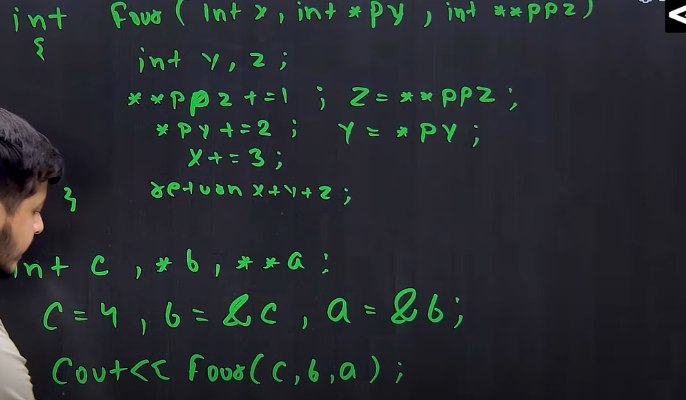 int Four ( int x , int *py , int **ppz )
{
int y, z ;
**ppz+=1 ; z = **ppz ;
*py+=2 ; y = *py ;
x+=3 ;
return x+y+z ;
}
int c , *b , **a ;
c=4 , b= &c , a = &b ;
Cout<< Four( c, b, a ) ;